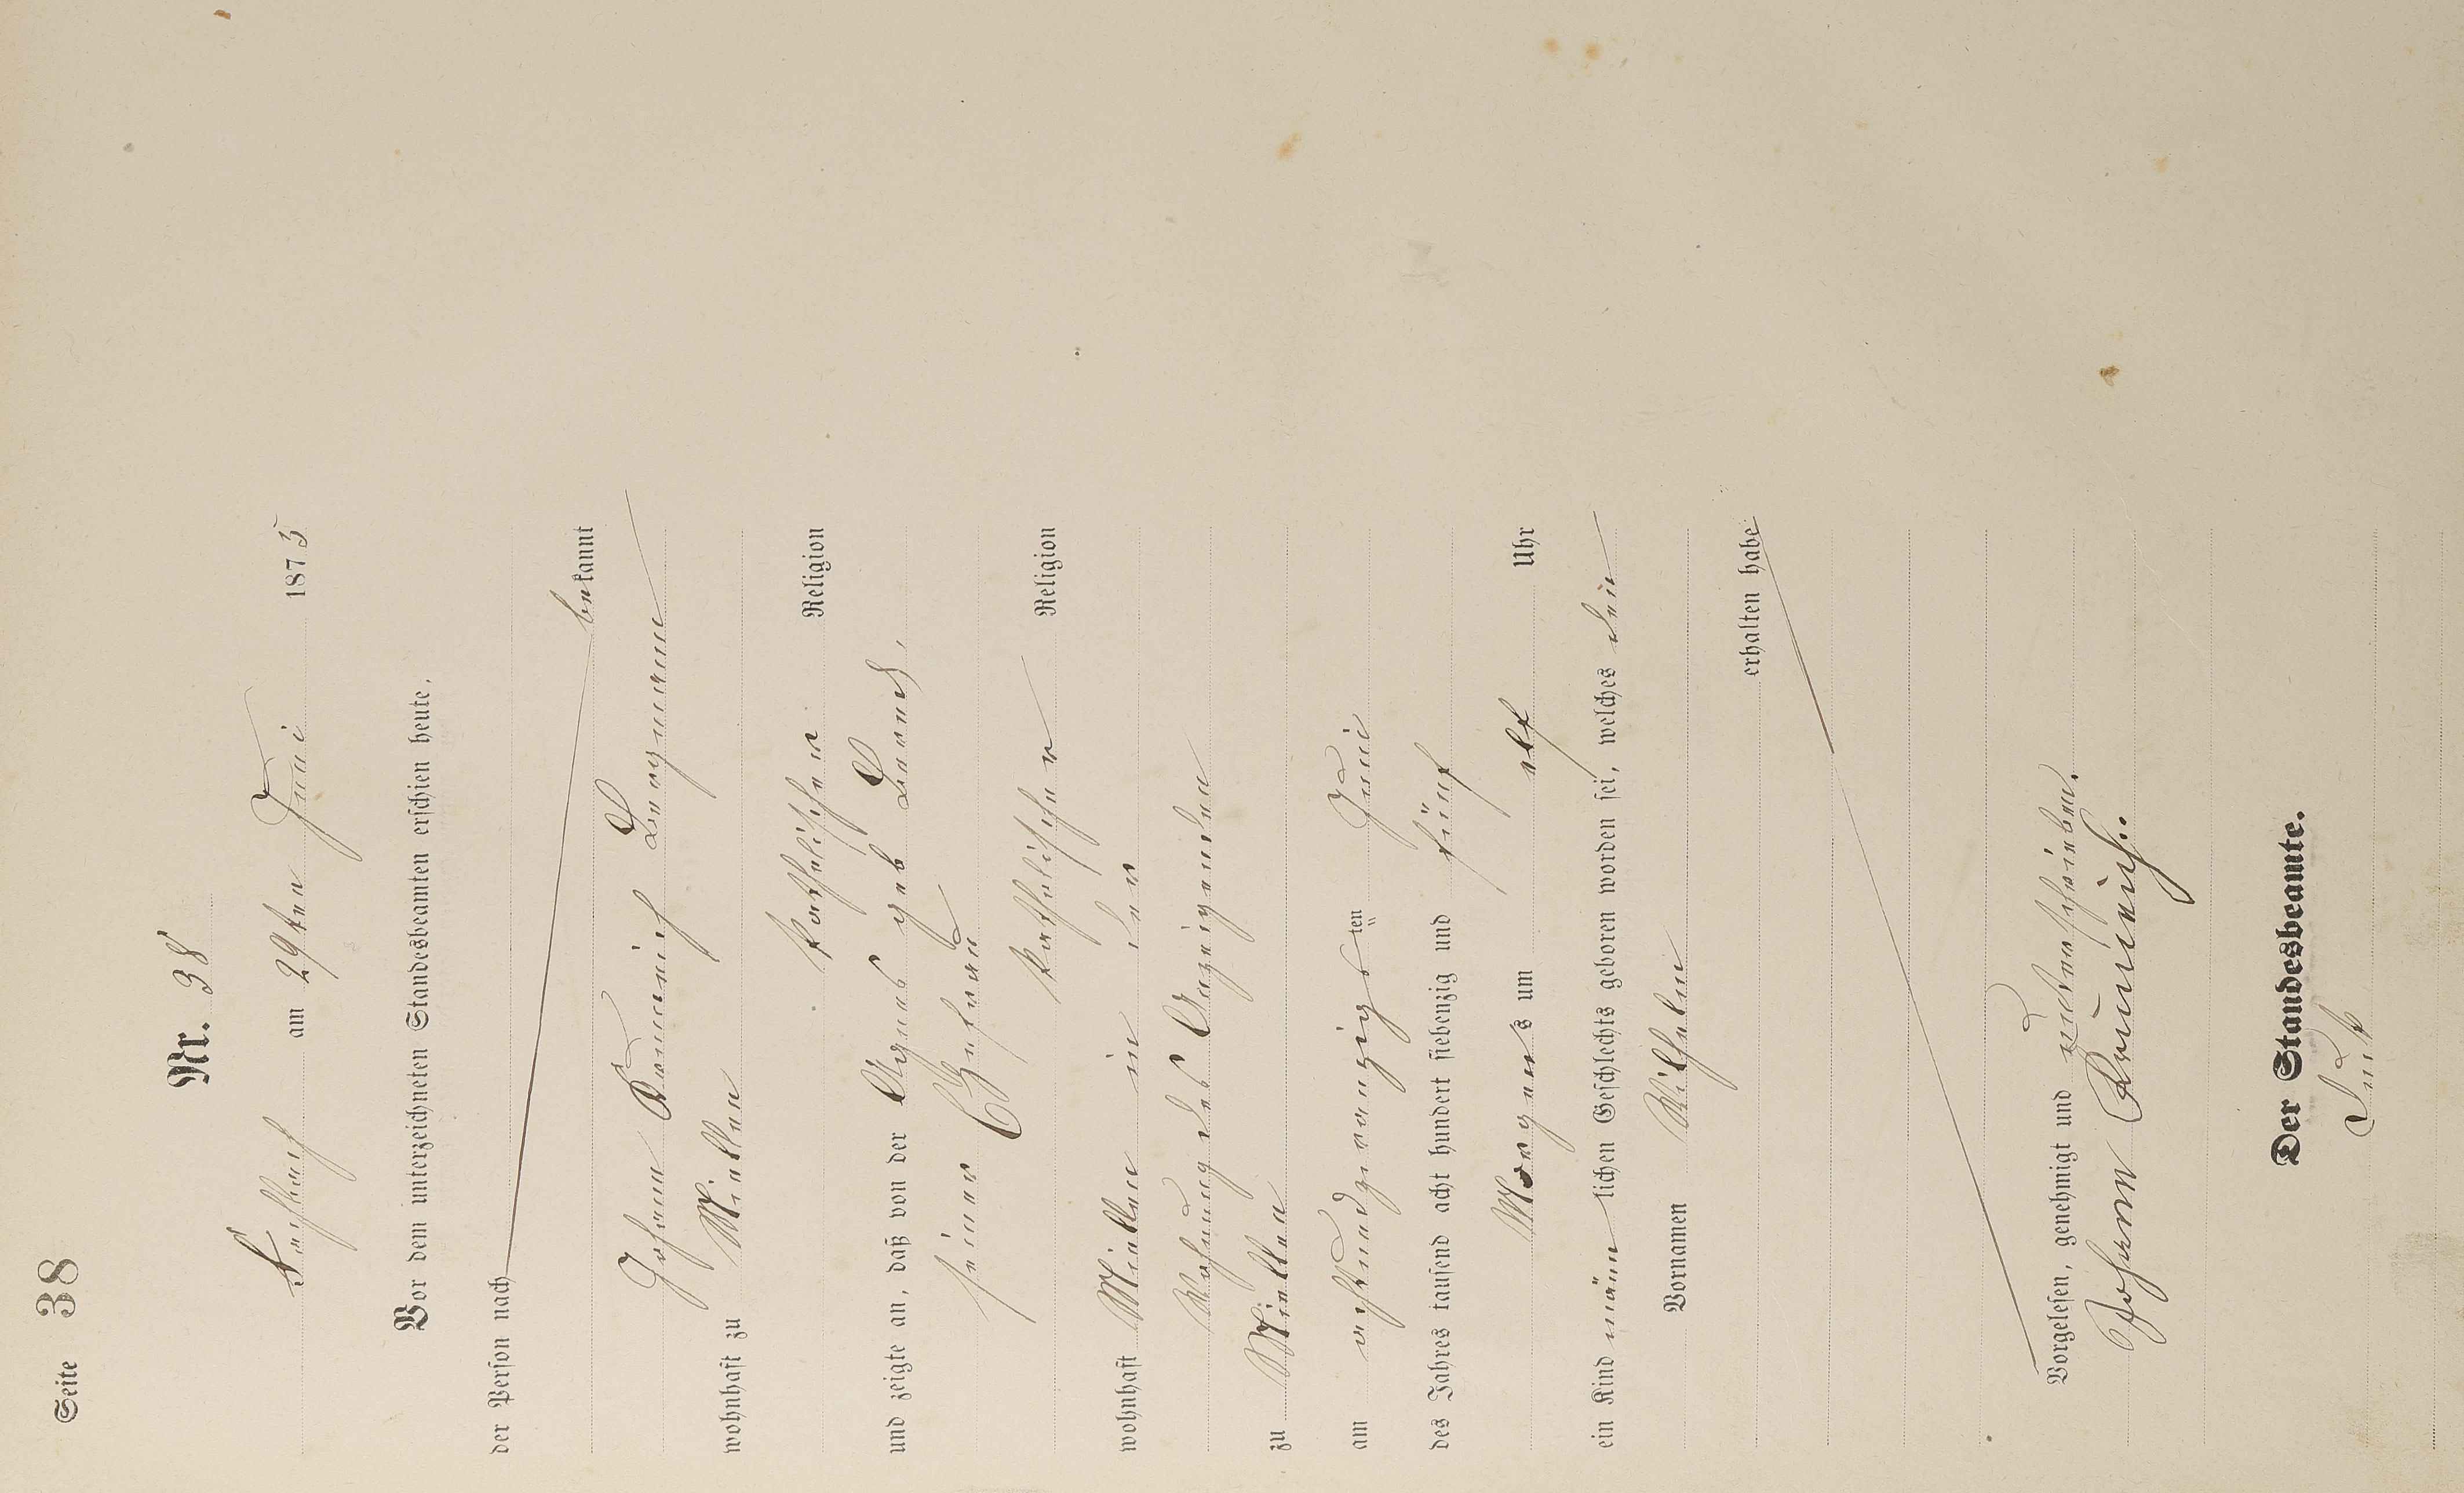 Seite 38
Nr. 38
Fachbach am 29ten Juni 1875
Vor dem unterzeichneten Standesbeamten erschien heute,
der Person nach
bekannt
Johann Bergmann
wohnhaft zu Miellen
katholischer Religion
und zeigte an, daß von der Agnes geb
seiner Ehefrau
katholischer Religion
wohnhaft Miellen in der
Wohnung des Anzeigenden
zu Miellen
am achtundzwanzigsten Juni
des Jahres tausend acht hundert siebenzig und fünf
Morgens um elf Uhr
ein Kind männlichen Geschlechts geboren worden sei, welches den
Vornamen Wilhelm
erhalten habe
Vorgelesen, genehmigt und unterschrieben.
Johann
Der Standesbeamte.